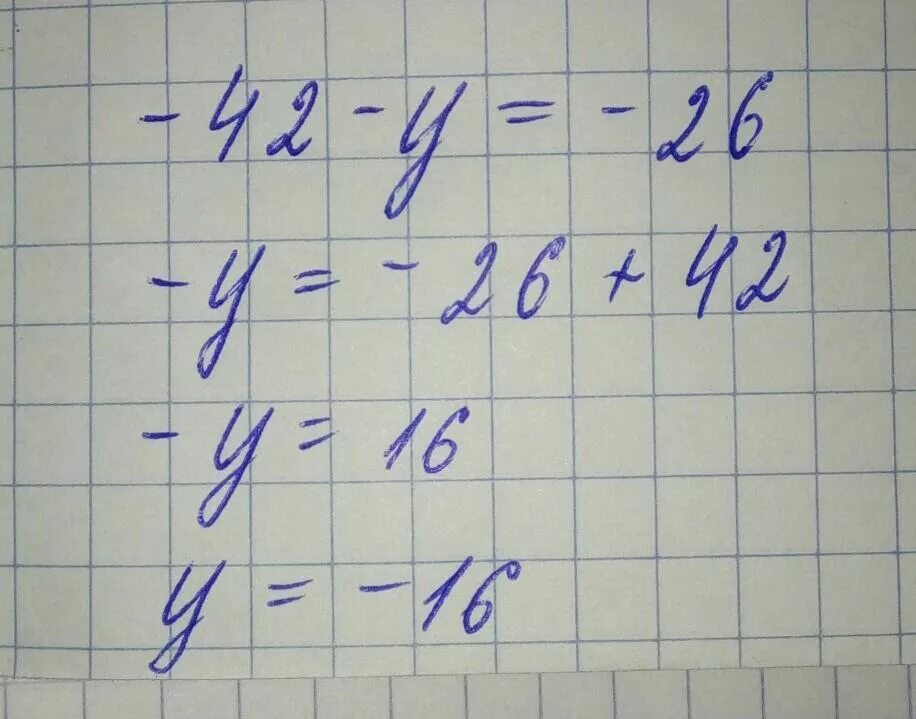 -42 - y = - 26
-y = - 26 + 42
-y = 16
y = -16